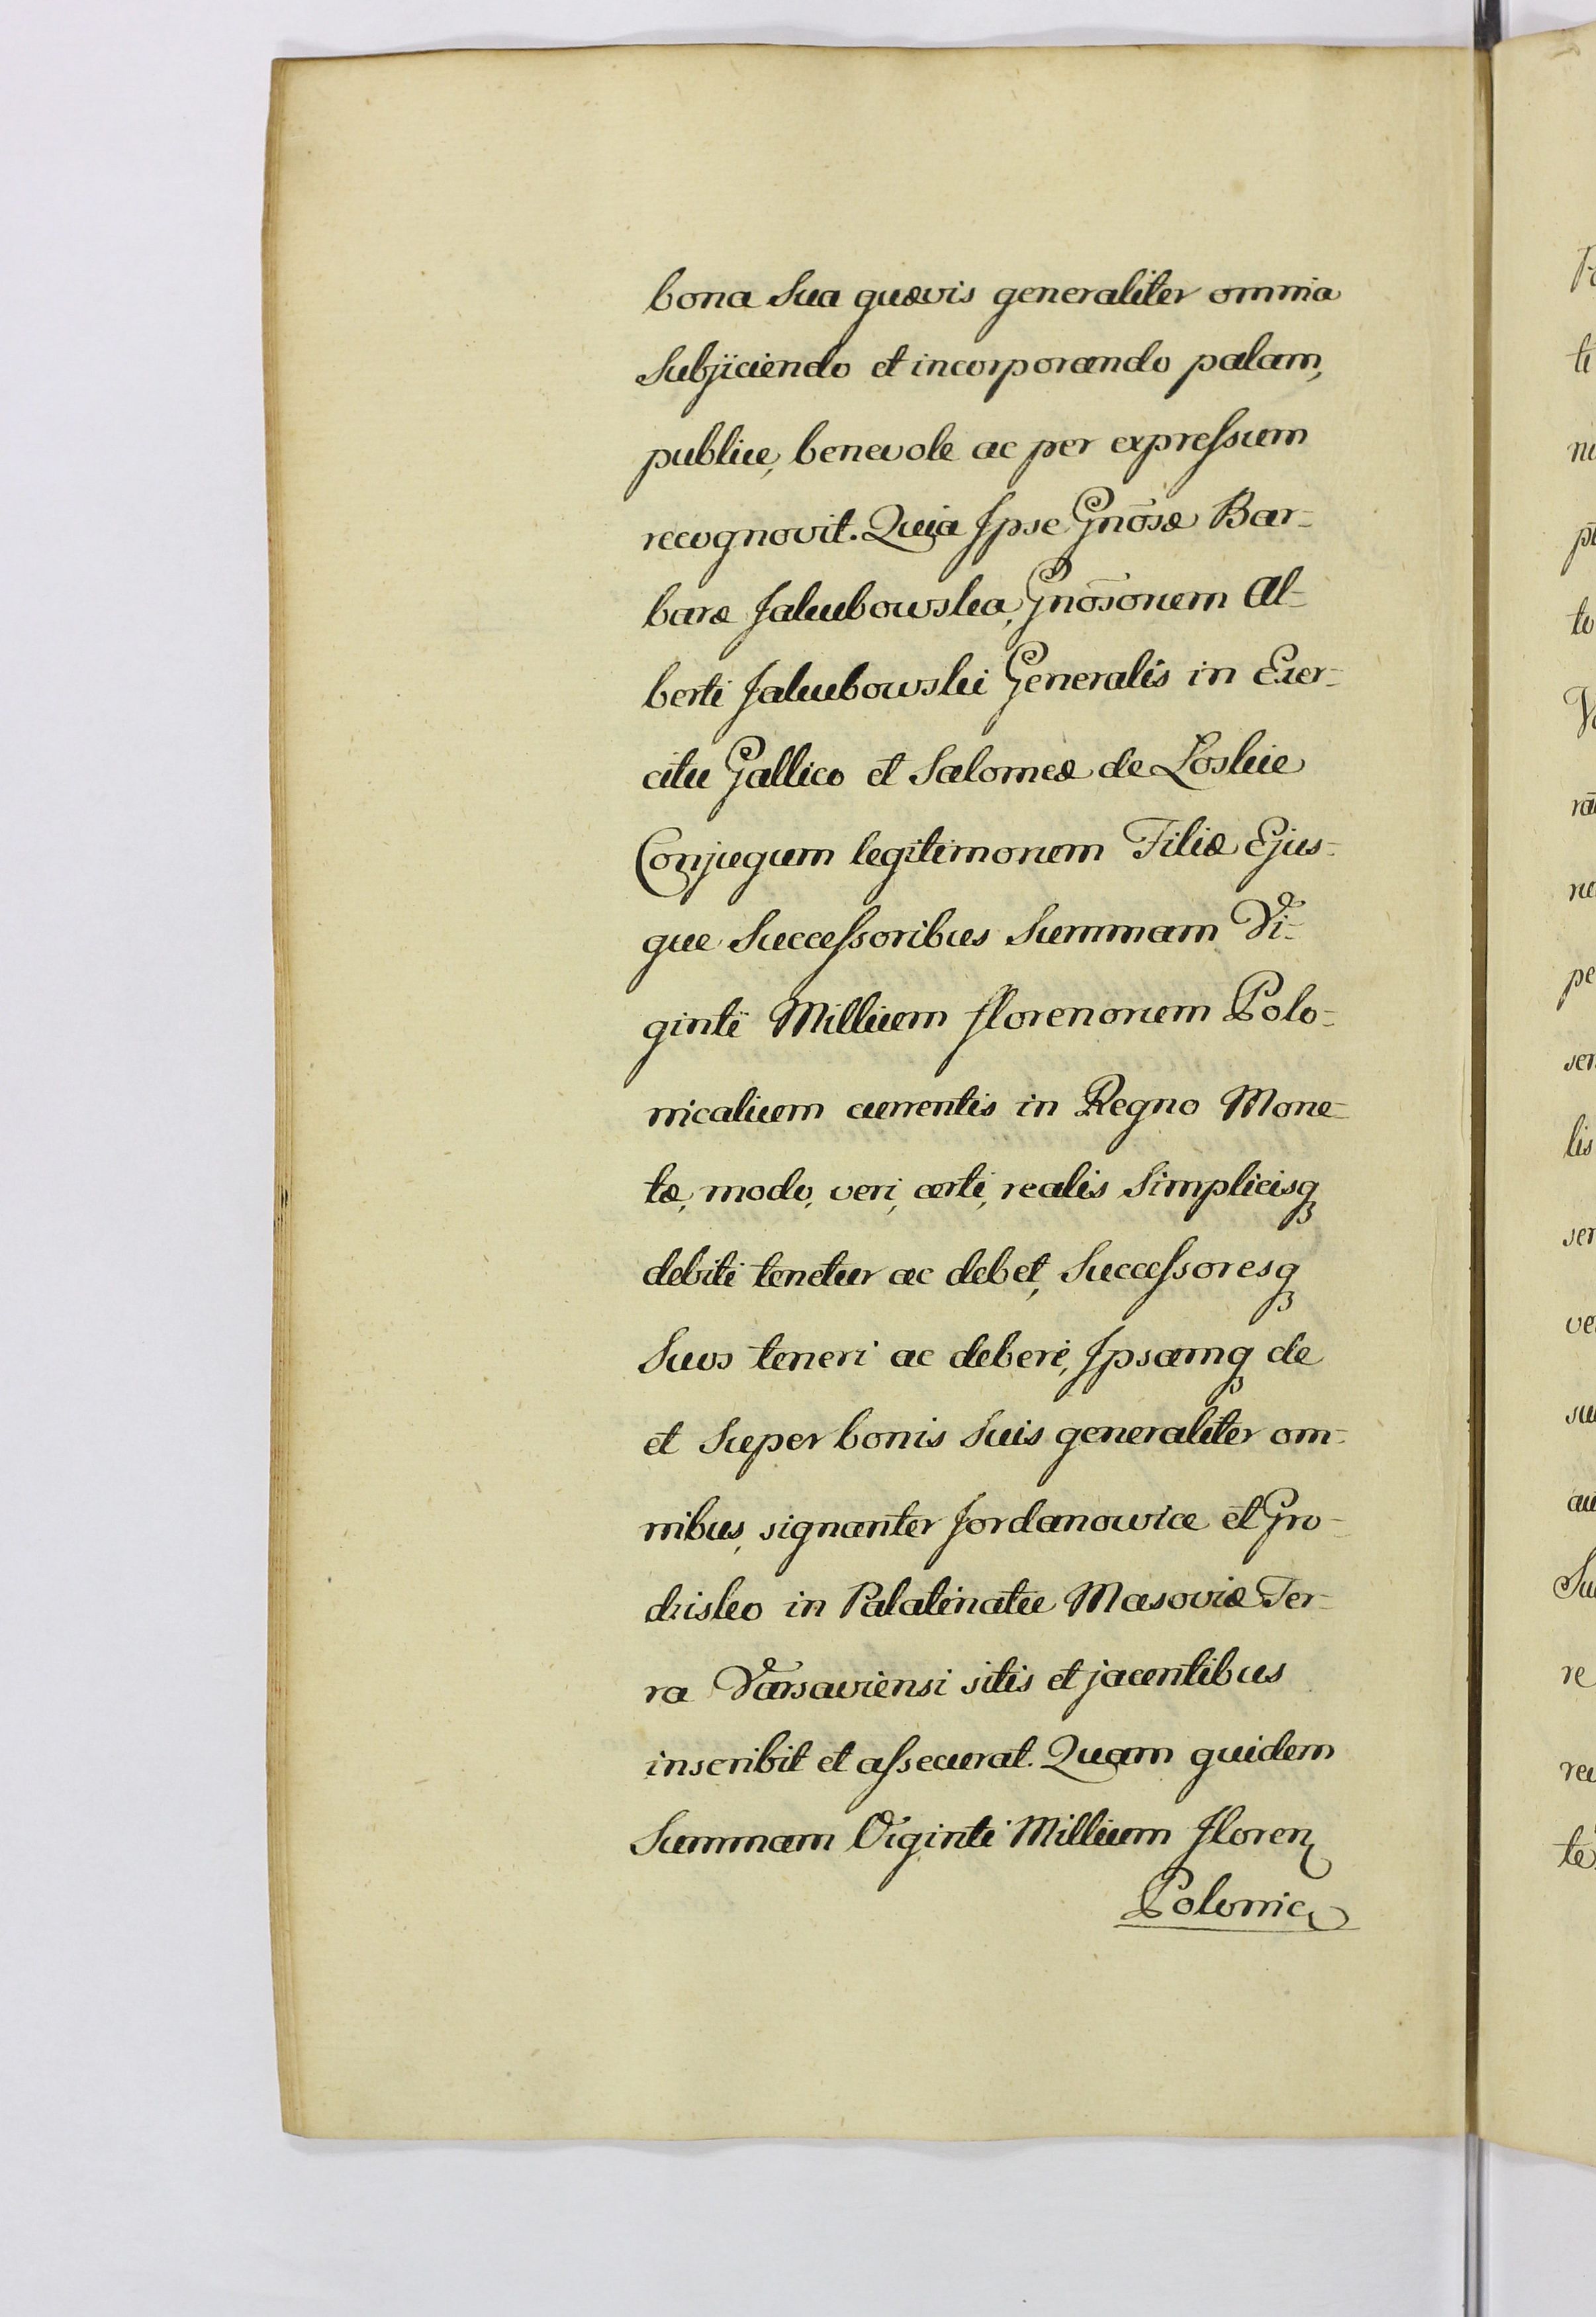 bona Sua quævis generaliter omnia
Subjiciendo et incorporando palam,
publice, benevole ac per expressum
recognovit. Quia Ipse Gnosæ Bar-
baræ Jakubowska, Gnosorum Al-
berti Jakubowski Generalis in Exer-
citu Gallico et Salomeæ de Łoskie
Conjugum legitimorum Filiæ Ejus-
que Successoribus Summam Vi-
ginti Millium florenorum Polo-
nicalium currentis in Regno Mone-
tæ, modo, veri, certi, realis Simplicisq
debiti tenetur ac debet, Successoresq
Suos teneri ac deberi, Ipsamq de
et Super bonis Suis generaliter om-
nibus, signanter Jordanowice et Gro-
dzisko in Palatinatu Masoviæ Ter-
ra Varsaviensi sitis et jacentibus
inscribit et assecurat. Quam quidem
Summam Viginti Millium Floren
Polonic